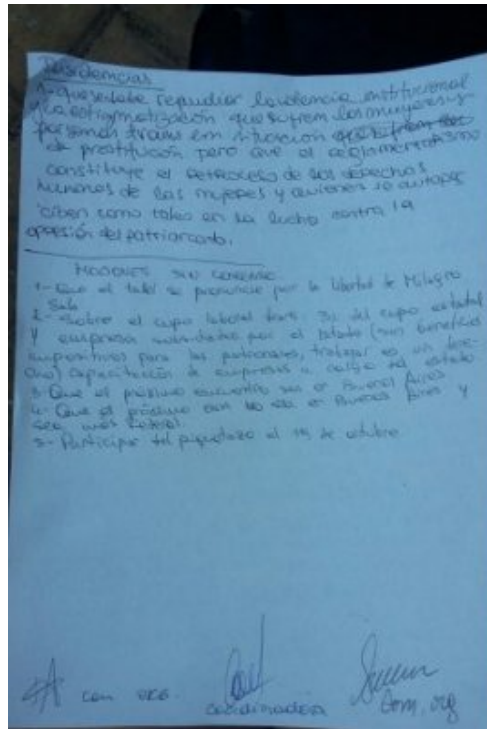 Disidencias
1- que se debe repudiar la violencia institucional
y la estigmatización que sufren las mujeres y
personas trans en situación
de prostitución pero que el reglamentarismo
constituye el retroceso de los derechos
humanos de las mujeres y quienes se autoper
ciben como tales en la lucha contra la
opresión del patriarcado.
MOCIONES SIN CONSENSO
1- Que el taller se pronuncie por la libertad de Milagro
Sala
2- Sobre el cupo laboral trans: 3% del cupo estatal
y empresas por el Estado (sin beneficios
impositivos para las patronales, trabajar es un dere
cho) capacitación de empresas a cargo del estado
3- Que el próximo encuentro sea en Buenos Aires
4- Que el próximo enm no sea en Buenos Aires y
sea más federal.
5- Participar del piquetazo el 15 de octubre
coordinadora
Com. org